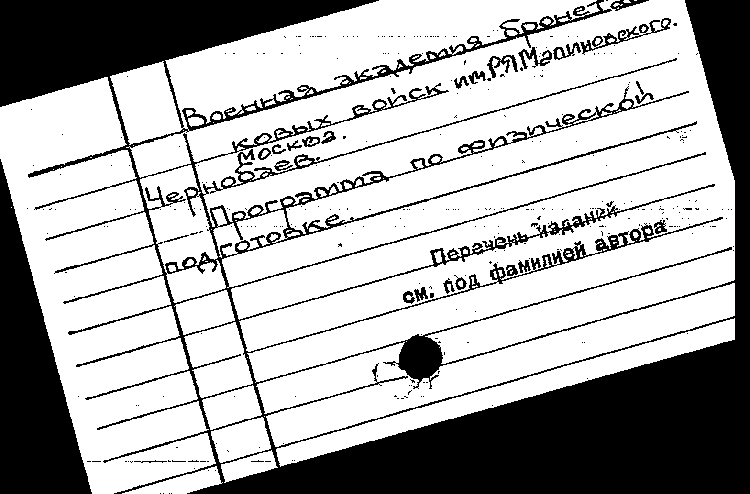 Военная академия бронета
ковых войск им.Р.Я.Малиновского.
Москва.
Чернобаев.
Программа по физической
подготовке.
Перечень изданий
см. под фамилией автора